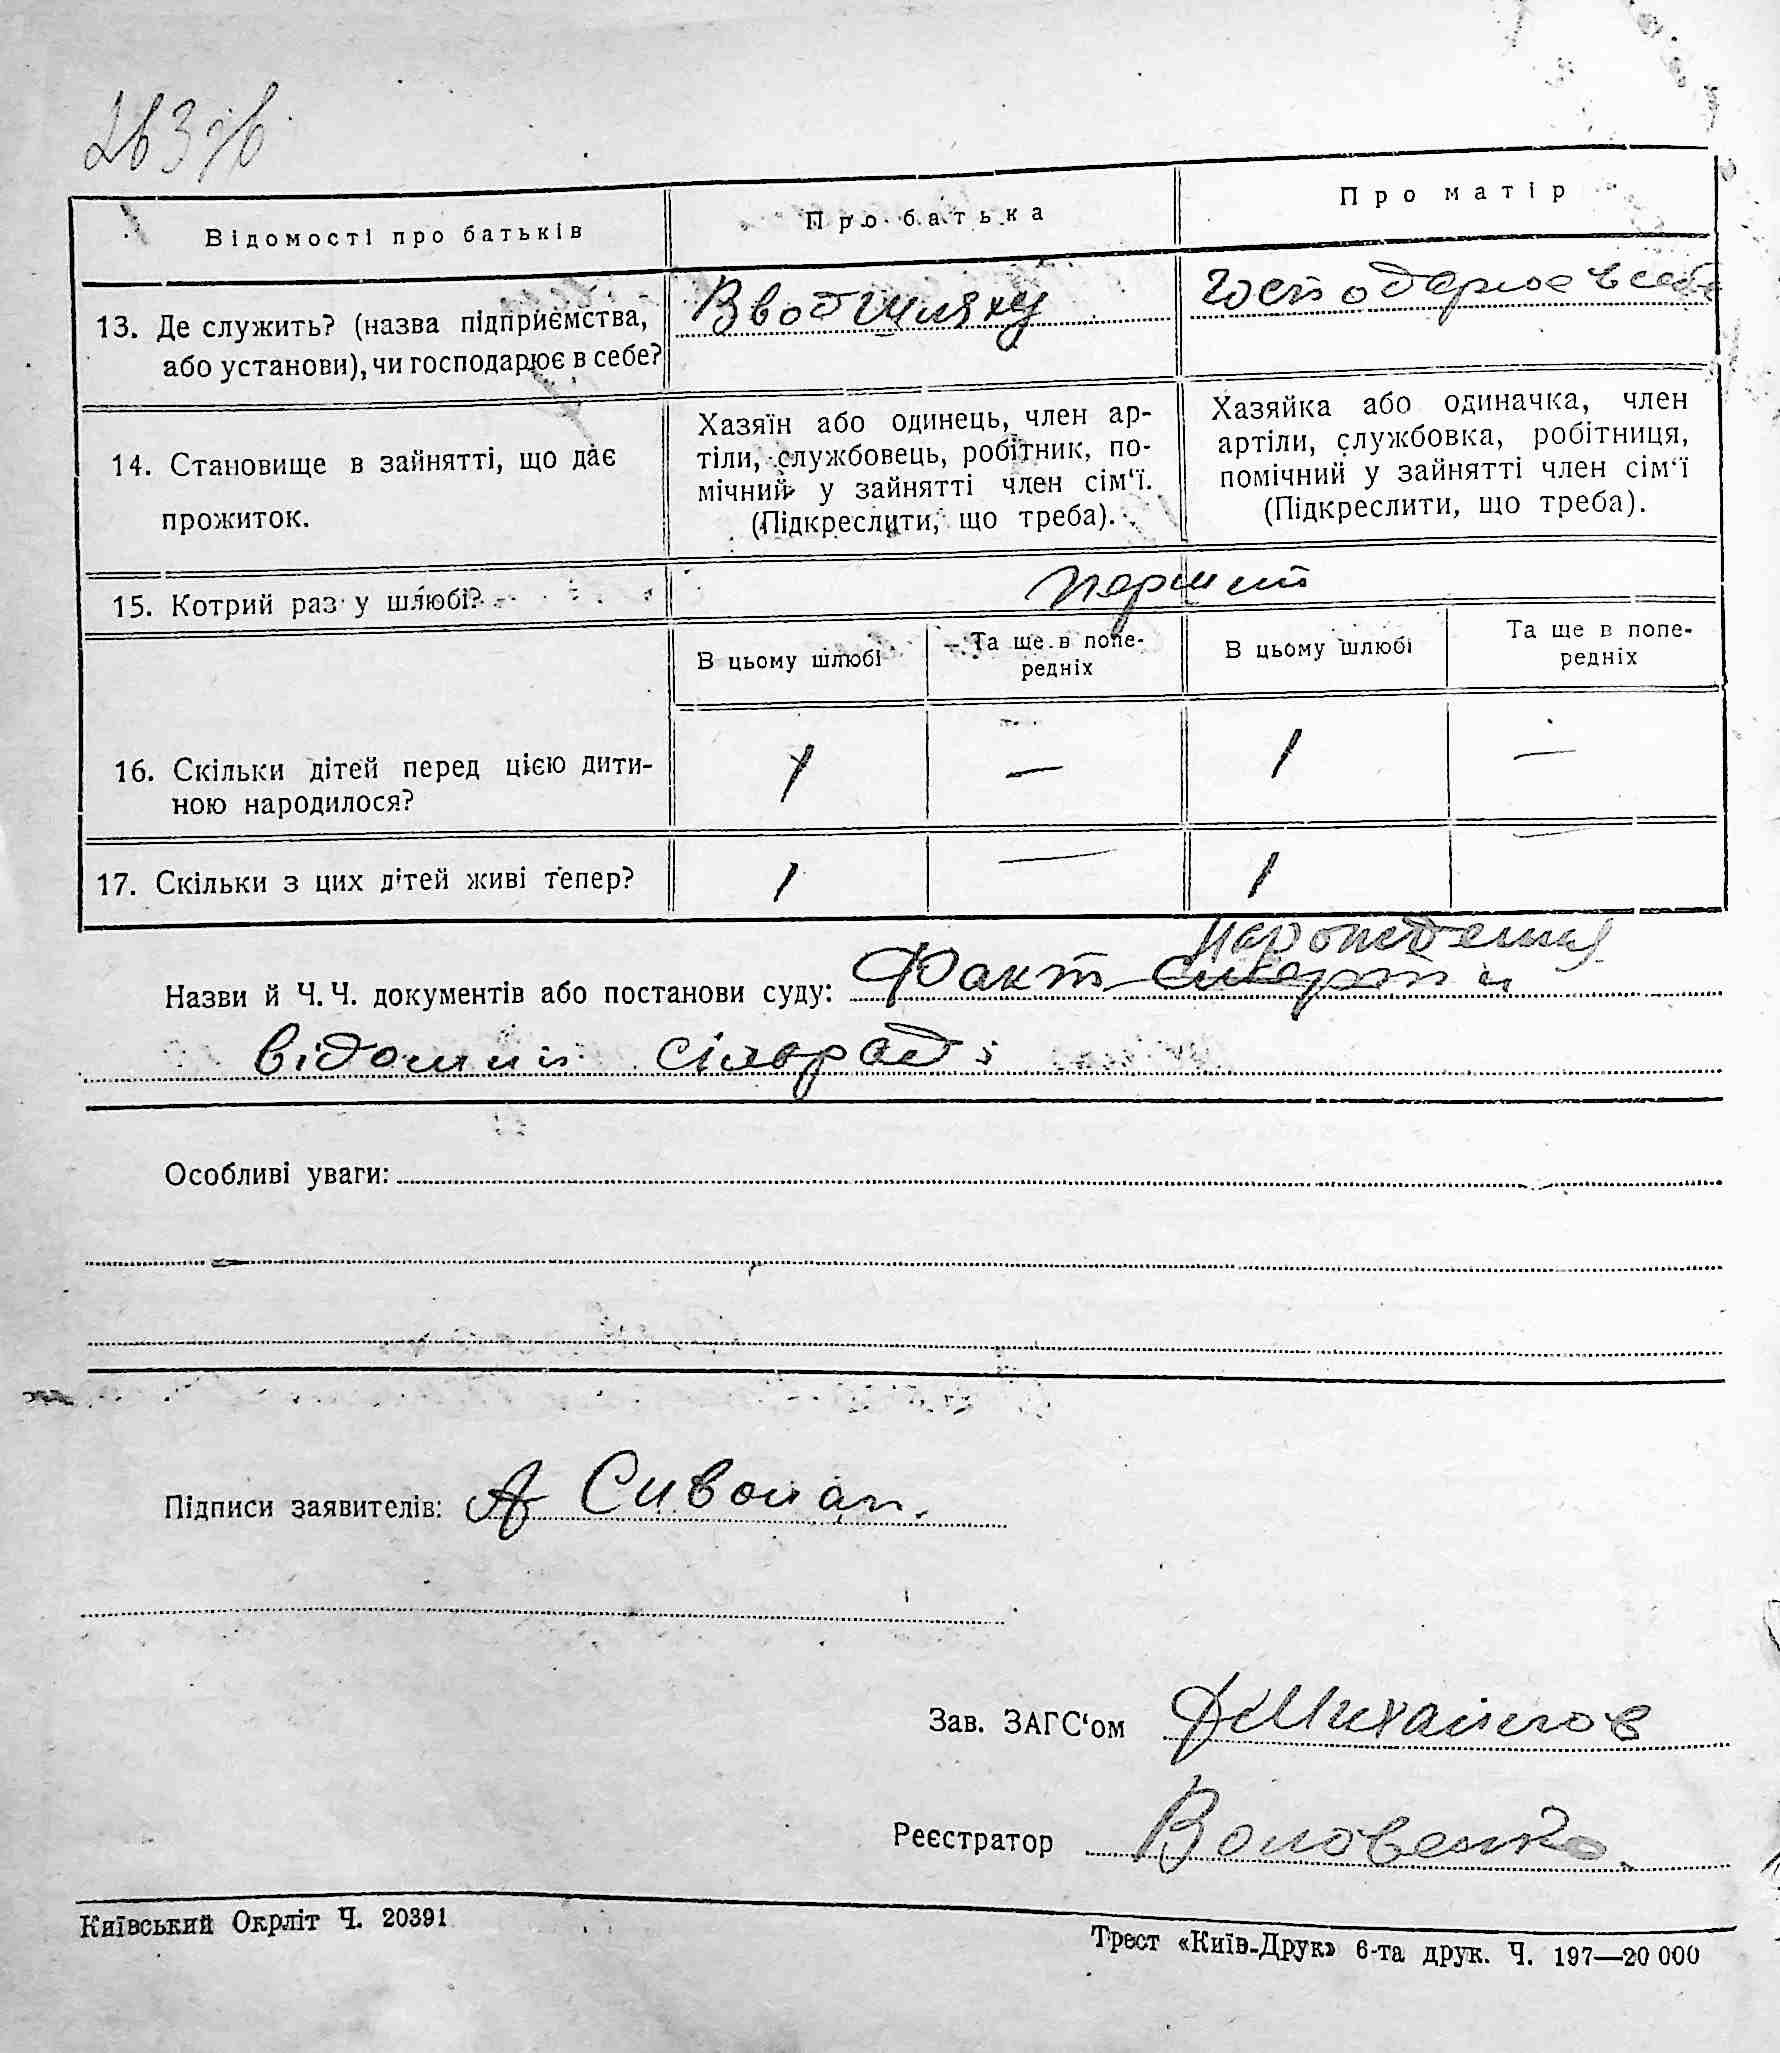 263 зв.
Відомості про батьків
Про батька
Про матір
13. Де служить? (назва підприємства,
або установи), чи господарює в себе?
В водшляху
господарює в себе
14. Становище в зайнятті, що дає
прожиток.
Хазяїн або одинець, член ар-
тіли, службовець, робітник, по-
мічний у зайнятті член сім‘ї.
(Підкреслити, що треба).
Хазяйка або одиначка, член
артіли, службовка, робітниця,
помічний у зайнятті член сім‘ї
(Підкреслити, що треба).
15. Котрий раз у шлюбі?
перший
В цьому шлюбі
Та ще в попе-
редніх
В цьому шлюбі
Та ще в попе-
редніх
16. Скільки дітей перед цією дити-
ною народилося?
1 — 1 —
17. Скільки з цих дітей живі тепер?
1 — 1 —
народження
Назви й Ч. Ч. документів або постанови суду: Факт смерти
відомий сільраді
Особливі уваги:
Підписи заявителів: А Сивопап.
Зав. ЗАГС‘ом Михайлов
Реєстратор
Київський Окрліт Ч. 20391
Трест «Київ-Друк» 6-та друк. Ч. 197—20 000